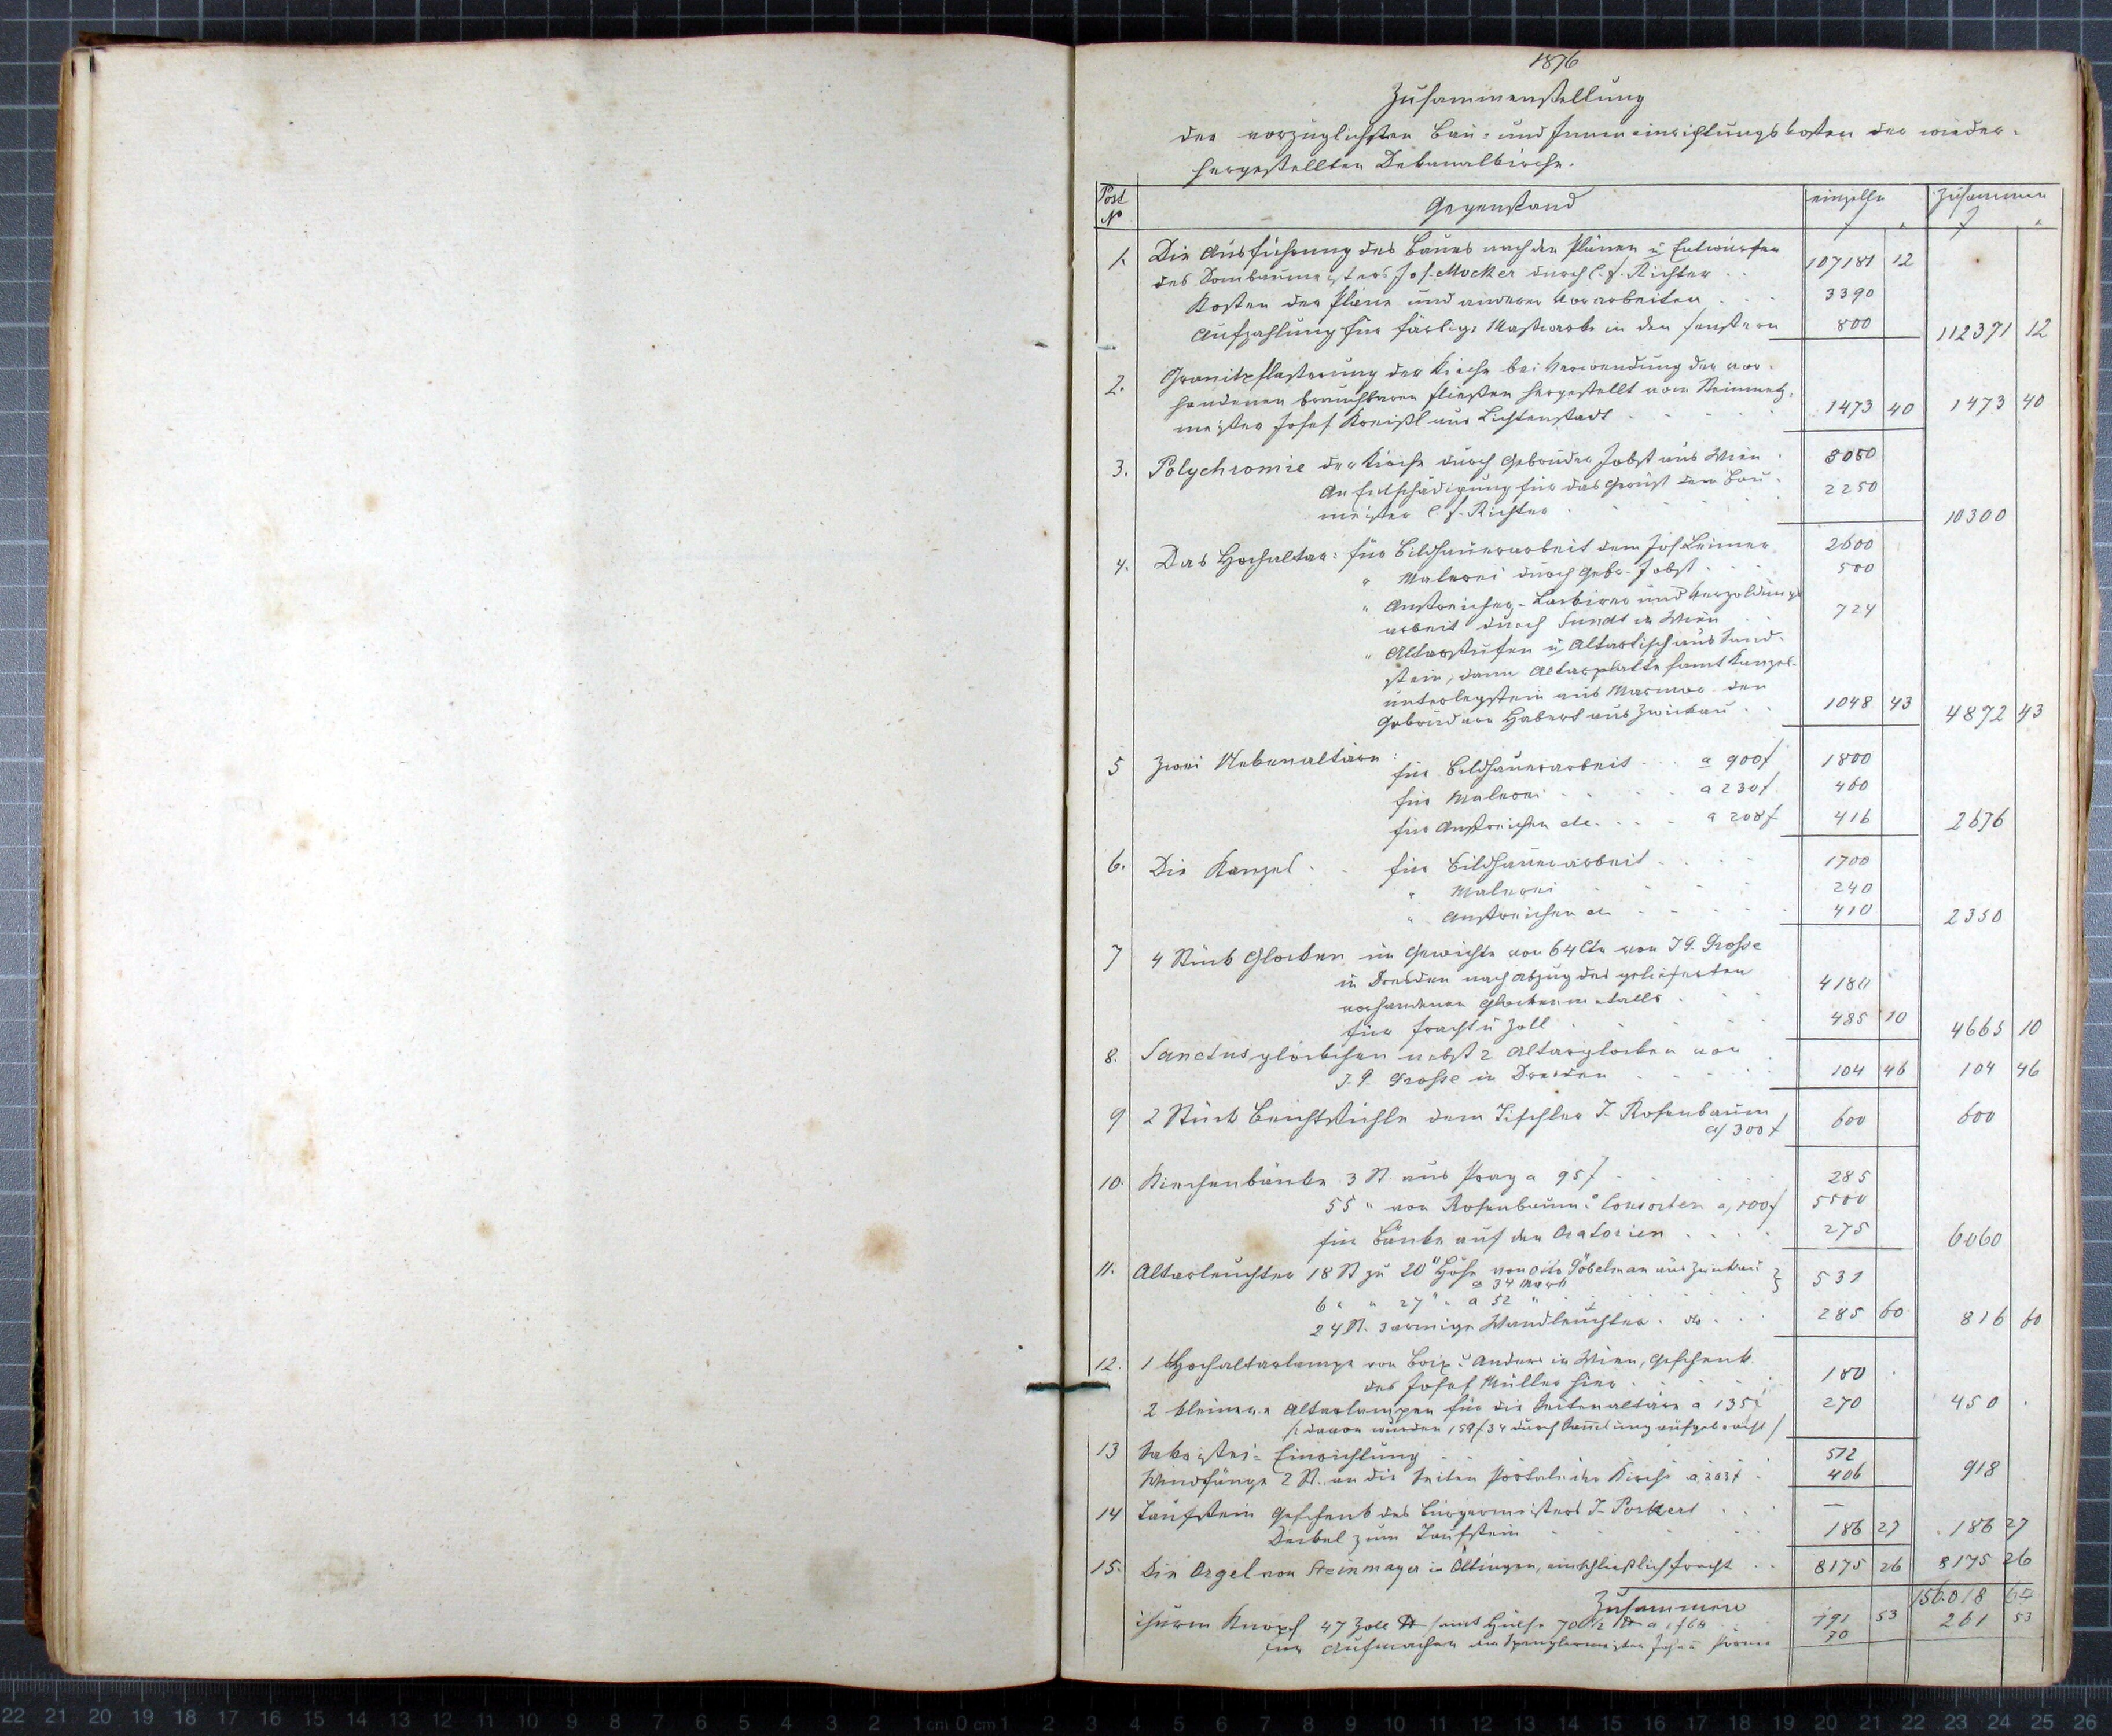 1876
Zusammenstellung
der vorzüglichsten Bau- und Inneneinrichtungskosten der wieder-
hergestellten Dekanalkirche.
Post No Gegenstand einzelln zusammen
f f
1. Die Ausführung des Baues nach den Plänen u Entwürfen
des Dombaumeisters Jos. Mocker durch C. F. Richter . . 107181 12
Kosten der Pläne und anderer Vorarbeiten . . . 3390
Aufzahlung für färbige Maßwerke in den Fenstern 800 112371 12
2. Granitpflasterung der Kirche bei Verwendung der vor-
handenen brauchbaren Fließen hergestellt vom Steinmetz-
meister Josef Kreißl aus Lichtenstadt 1473 40 1473 40
3. Polychromie der Kirche durch Gebrüder Jobst aus Wien . 8050
An Entschädigung für das Gerüst dem Bau- 2250
meister C. F. Richter 10300
4. Das Hochaltar: für Bildhauerarbeit dem Jos Leimer 2600
" Malerei durch Gebr. Jobst . . . 500
" Anstreicher- Lackirer und Vergoldungs
arbeit durch in Wien 724
" Altarstufen u Altartisch aus Sand-
stein, dann Altarplatte samt Kanzel-
unterlegstein aus Marmor den
Gebrüdern Habert aus Zwickau . . 1048 43 4872 43
5 Zwei Nebenaltäre :
für Bildhauerarbeit . . . a 900f 1800
für Malerei . . . . a 230f. 460
für Anstreichen etc. . . . a 208f 416 2676
6. Die Kanzel . . für Bildhauerarbeit . . . 1700
" Malerei . . . . 240
" Anstreichen etc - - - - 410 2350
7 4 Stück Glocken im Gewichte von 64 Ctr von J G. Grosse
in Dresden nach Abzug des gelieferten
vorhandenen Glockenmetalls . . . 4180
für Fracht u Zoll . . . . 485 10 4665 10
8. Sanctusglöckchen nebst 2 Altarglocken von
J. G. Grosse in Dresden 104 46 104 46
9 2 Stück Beichtstühle dem Tischler J. Rosenbaum
a/ 300f 600 600
10. Kirchenbänke 3 St aus Prag a 95f . . . . 285
55 " von Rosenbaum u Consorten a, 100f 5500
für Bänke auf den Oratorien . . . . 275 6060
11. Altarleuchter 18 St zu 20" Höhe von Otto Göbelman aus Zwickau
a 34 Mark 531
6 " " 27" " a 52 "
24 St. 3armige Wandleuchter . do . . . 285 60 816 60
12. 1 Hochaltarlampe von Brix u Anders in Wien, Geschenk
des Josef Müller hier . . . . 180
2 kleinere Altarlampen für die Seitenaltäre a 135f 270 450
/: davon wurden 159f34 durch Samlung aufgebracht /
13 Sakristei- Einrichtung 512
Windfänge 2 St. an die Seiten Portale der Kirche a 203f 406 918
14 Taufstein Geschenk des Bürgermeisters J. Porkert . . —
Deckel zum Taufstein 186 27 186 27
15. Die Orgel von Steinmayer in Öttingen, einschließlich Fracht . . 8175 26 8175 26
Zusammen 156.018 64
Thurm Knopf 47 Zoll samt Hülse 70 1/2 191 53 261 53
für Aufmachen dem Spenglermeister 70